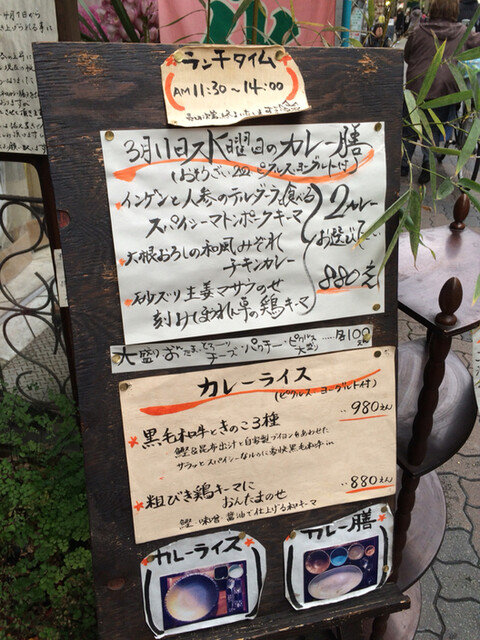 ランチタイム
AM 11:30～14:00
3月11日水曜日のカレー膳
(おそうざい2種 ピクルス・ヨーグルト付)
インゲンと人参のテルダーラ食べる
スパイシーマトンポークキーマ
大根おろしの和風みぞれ
チキンカレー
砂ズリ生姜マサラのせ
刻みほうれん草の鶏キーマ
2カレー
お選び下さい
880えん
大盛り・おんたま・とろーり
チーズ・パクチー・ピクルス
大盛り
……各100えん
カレーライス
(ピクルス ヨーグルト付)
980えん
黒毛和牛ときのこ3種
鰹&昆布出汁と自家製ブイヨンをあわせた
サラッとスパイシーなルゥに
黒毛和牛 in
880えん
粗びき鶏キーマに
おんたまのせ
鰹 味噌 醤油で仕上げる和キーマ
カレーライス
カレー膳